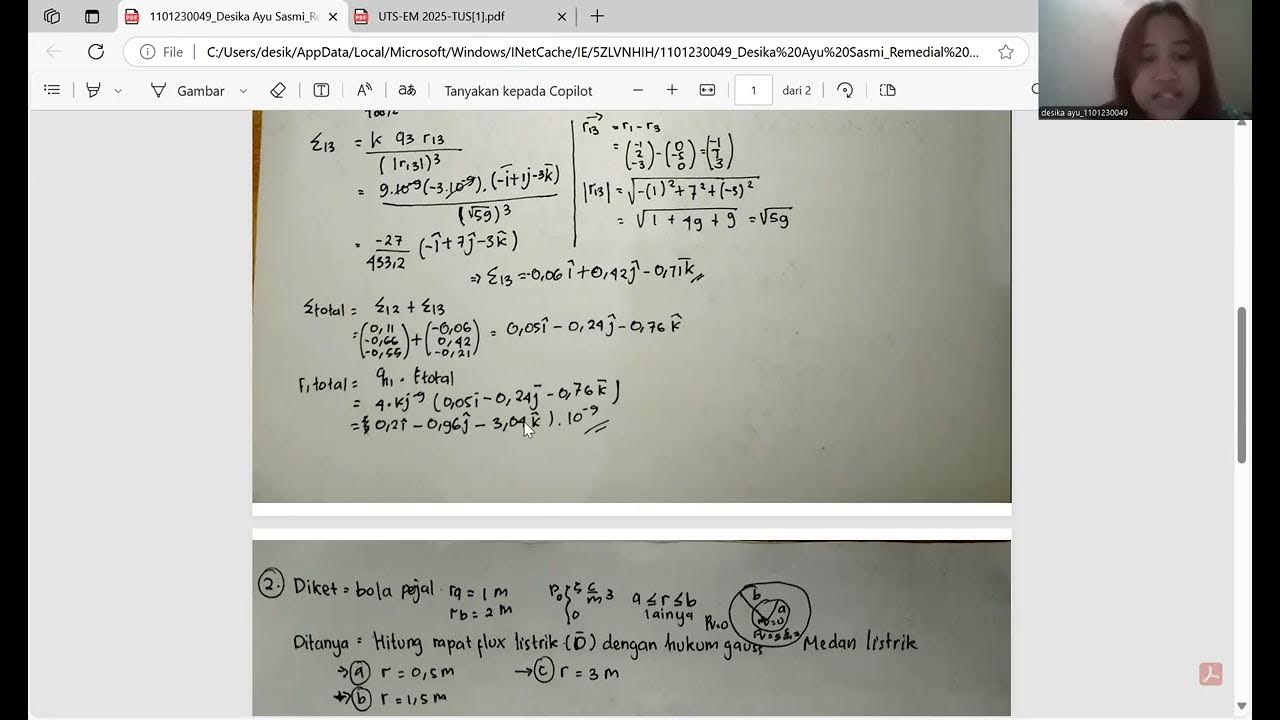 1101230049_Desika Ayu Sasmi_Re
UTS-EM 2025-TUS[1].pdf
File
C:/Users/desik/AppData/Local/Microsoft/Windows/INetCache/IE/5ZLVNHIH/1101230049_Desika%20Ayu%20Sasmi_Remedial%20...
Gambar
Tanyakan kepada Copilot
1
dari 2
desika ayu_1101230049
Σ13 = k q3 r13
(|r13|)^3
= 9.10^-9 (-3.10^-9) . (-i+1j-3k)
(√59)^3
= -27 (-î+7ĵ-3k̂)
453,2
⇒ Σ13 = -0,06 î + 0,42 ĵ - 0,71 k
r13 = r1 - r3
= (-1 2 -3) - (0 -5 0) = (-1 7 3)
|r13| = √-(1)^2+7^2+(-3)^2
= √1 + 49 + 9 = √59
Σtotal = Σ12 + Σ13
= (0,11 -0,66 -0,55) + (-0,06 0,42 -0,21) = 0,05î - 0,24ĵ - 0,76 k̂
F1total = q1 . Etotal
= 4.kj^-9 (0,05i - 0,24j - 0,76 k)
= 0,2î - 0,96ĵ - 3,04k̂) . 10^-9
2. Diket = bola pejal ra = 1 m
rb = 2 m
ρ0 { 5 c/m3 a ≤ r ≤ b
0 lainya
ρv=0
b
a
Ditanya = Hitung rapat flux listrik (D) dengan hukum gauss Medan listrik
→ a r = 0,5 m → c r = 3 m
→ b r = 1,5 m